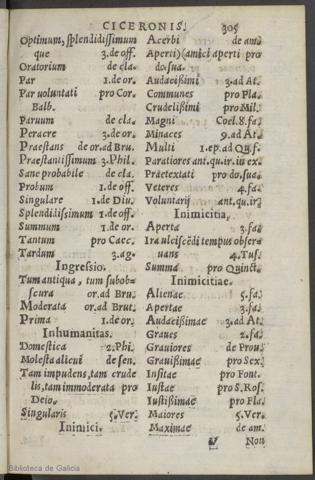 CICERONIS. 305
Optimum, splendidissimum
que 3.de off.
Oratorium de cla.
Par 1.de or.
Par uoluntati pro Cor.
Balb.
Paruum de cla.
Peracre 3.de or.
Praestans de or.ad Bru.
Praestantissimum 3.Phil.
Sane probabile de cla.
Probum 1.de off.
Singulare 1.de Diu.
Splendidissimum 1.de off.
Summum 1.de or.
Tantum pro Caec.
Tardum 3.ag.
Ingressio.
Tum antiqua, tum subob-
scura or.ad Bru.
Moderata or.ad Brut.
Prima 1.de or.
Inhumanitas.
Domestica 2.Phi.
Molesta alicui de sen.
Tam impudens, tam crude
lis, tam immoderata pro
Deio.
Singularis 5.Ver.
Inimici.
Acerbi de am.
Aperti) (amici aperti pro
do.sua.
Audacissimi 3.ad At.
Communes pro Pla.
Crudelissimi pro Mil.
Magni Coel.8.fa.
Minaces 9.ad At.
Multi 1.ep.ad Qu.f.
Paratiores ant.qu.ir.in ex.
Praetextati pro do.sua.
Veteres 4.fa.
Voluntarij ant.qu.ir
Inimicitia.
Aperta 3.fa.
Ira ulciscēdi tempus obser-
uans 4.Tus.
Summa pro Quinct.
Inimicitiae.
Alienae 5.fa.
Apertae 3.fa.
Audacissimae 3.ad At.
Graues 2.fa.
Grauiores de Prou.
Grauissimae pro Sex.
Insitae pro Font.
Iustae pro S.Ros.
Iustissimae pro Fla.
Maiores 5.Ver.
Maximae de am.
V Non
Biblioteca de Galicia